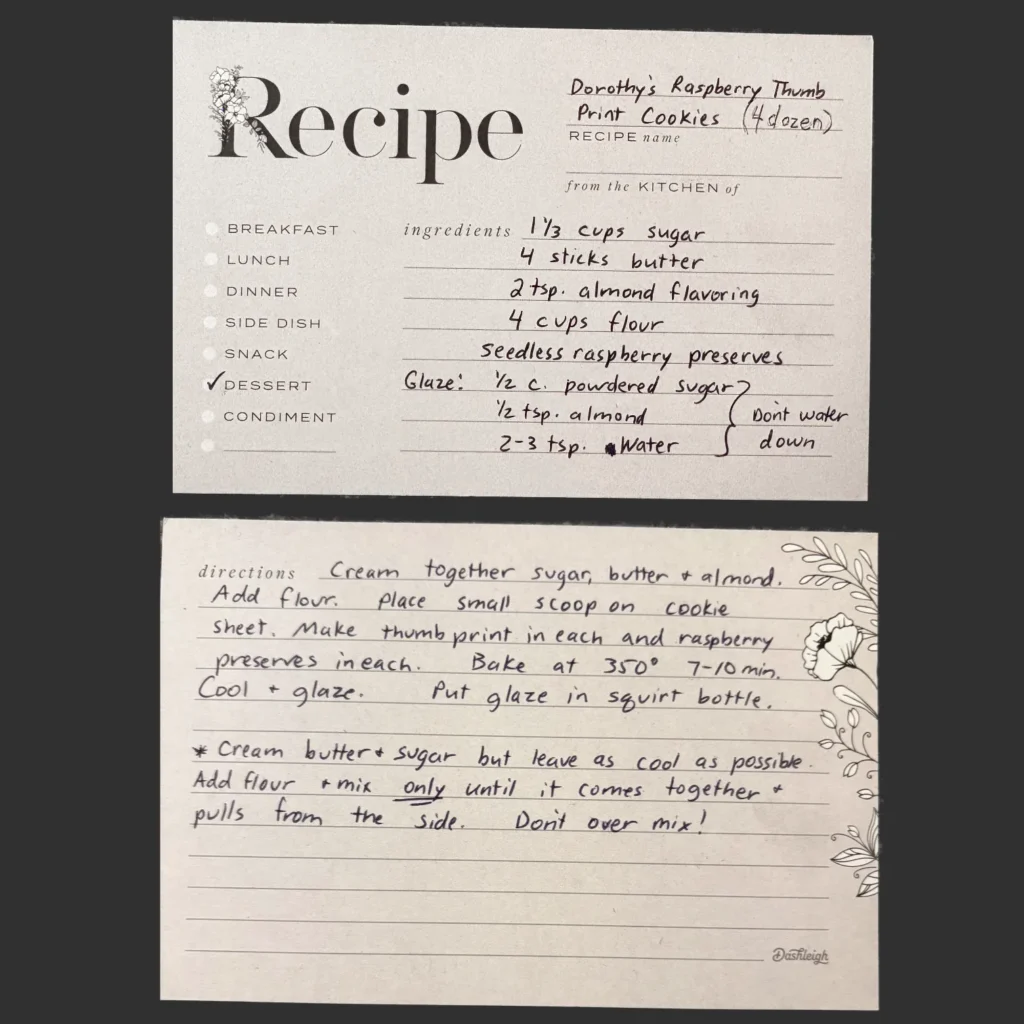 Recipe
Dorothy's Raspberry Thumb
Print Cookies (4 dozen)
RECIPE name
from the KITCHEN of
BREAKFAST
LUNCH
DINNER
SIDE DISH
SNACK
✓ DESSERT
CONDIMENT
ingredients 1 1/3 cups sugar
4 sticks butter
2 tsp. almond flavoring
4 cups flour
Seedless raspberry preserves
Glaze: 1/2 c. powdered sugar
1/2 tsp. almond
2-3 tsp. Water
Don't water
down
directions Cream together sugar, butter + almond.
Add flour. Place small scoop on cookie
sheet. Make thumb print in each and raspberry
preserves in each. Bake at 350° 7-10 min.
Cool + glaze. Put glaze in squirt bottle.
* Cream butter + sugar but leave as cool as possible.
Add flour + mix only until it comes together +
pulls from the side. Don't over mix!
Dashleigh